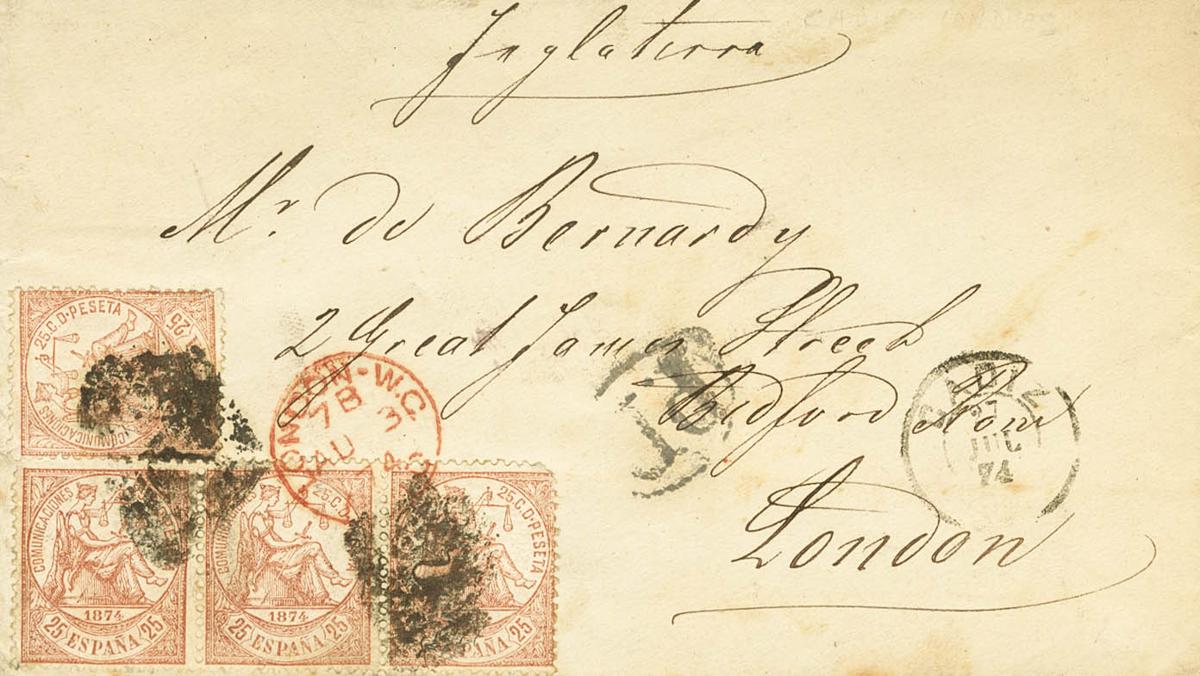 Inglaterra
Mr. de Bernardy
2 Great James Street
Bedford Row
London
25 C. D PESETA
25
COMUNICACIONES
LONDON-W.C
7B
AU 3
74
Pd
CADIZ
27
JUL
74
COMUNICACIONES
1874
25 ESPAÑA 25
25 C. D
1874
25 ESPAÑA 25
25 C. D PESETA
ESPAÑA 25